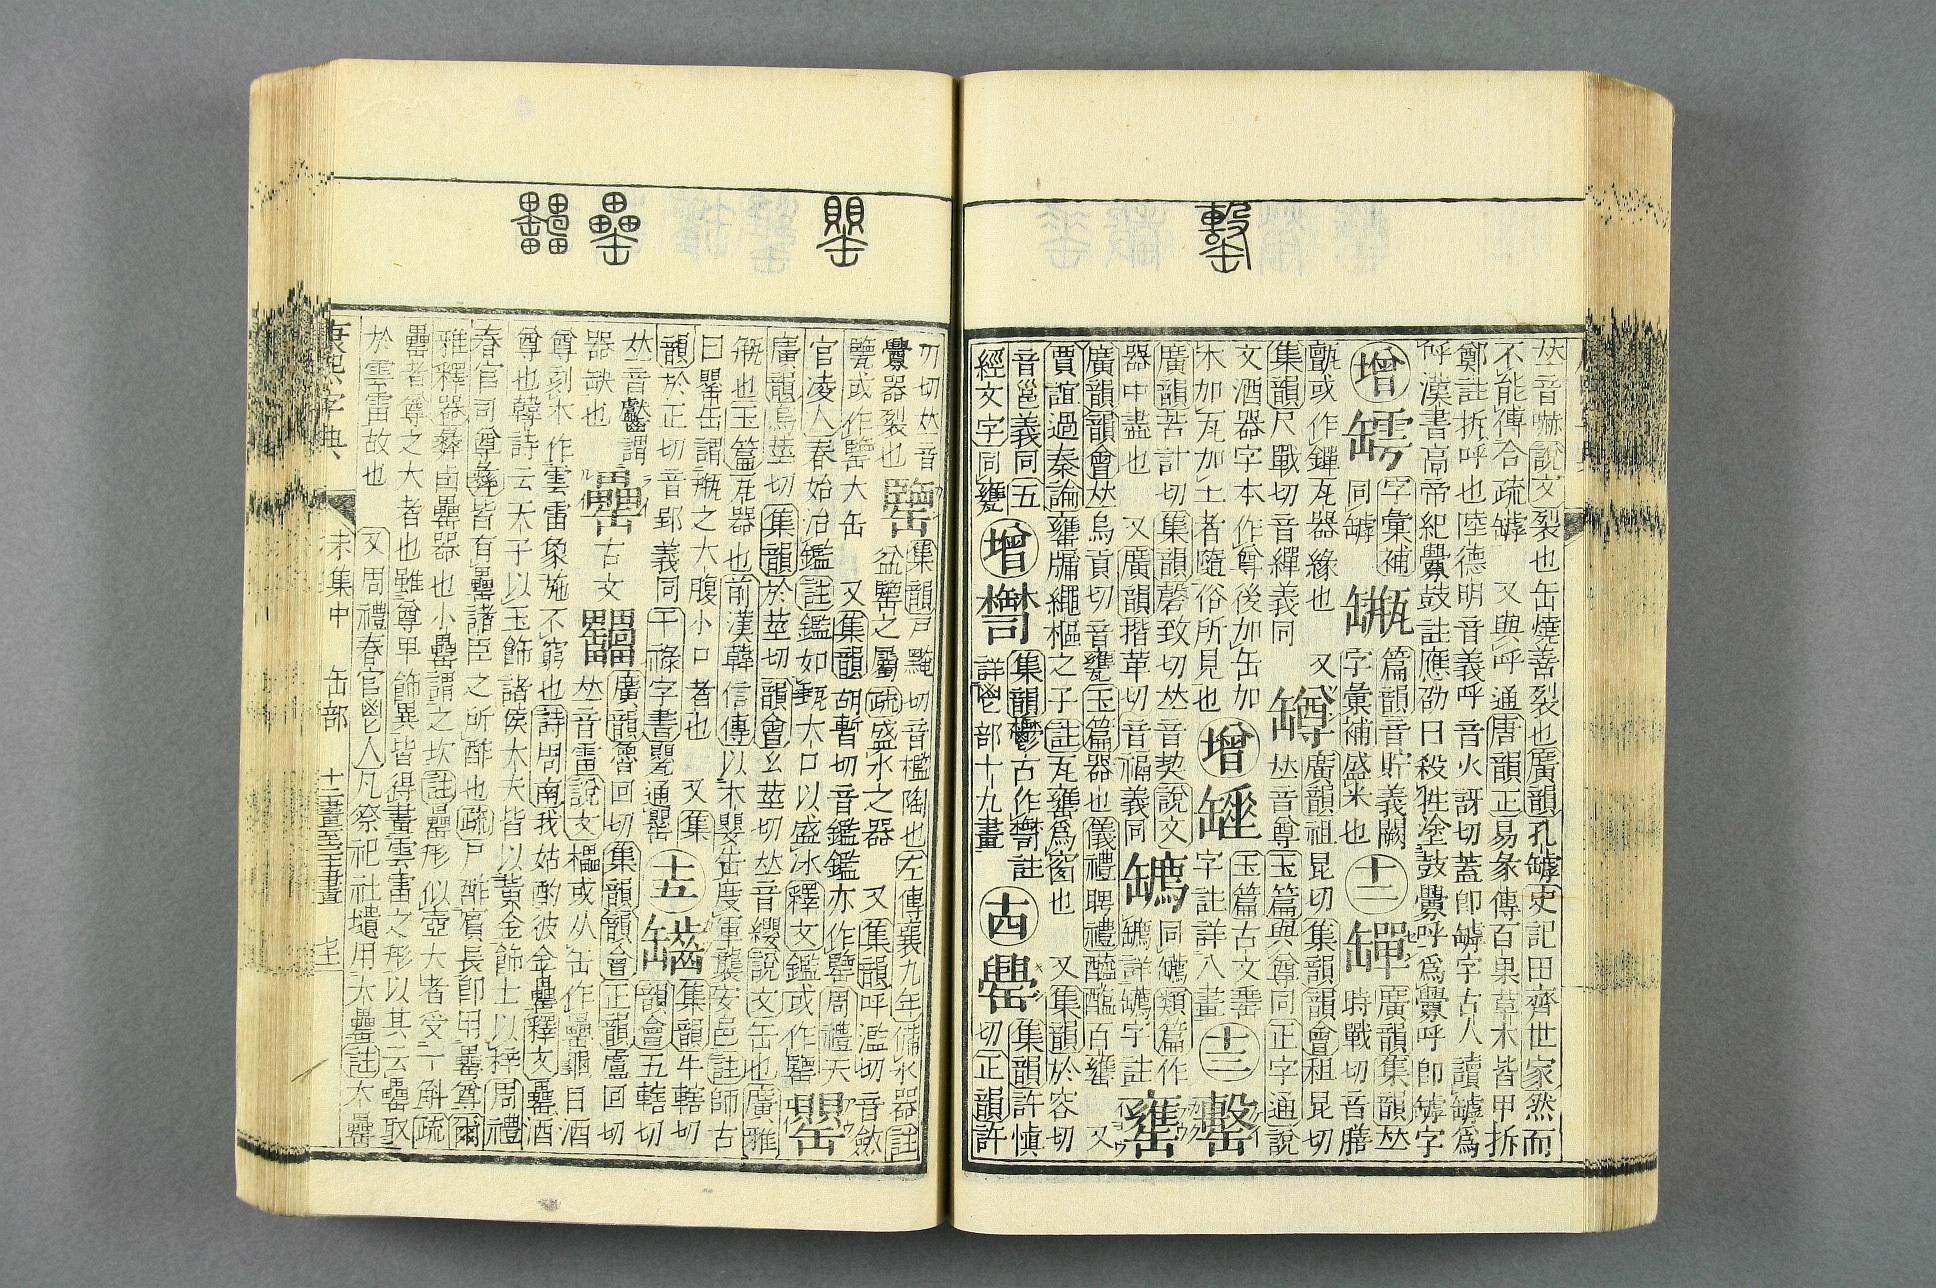 𠀤音嚇說文裂也缶燒善裂也廣韻孔罅史記田齊世家然而
不能傅合疏罅 又與呼通唐韻正易彖傳百果草木皆甲拆
鄭註拆呼也陸德明音義呼音火訝切蓋卽罅字古人讀罅爲
呼漢書高帝紀釁鼓註應劭曰殺牲塗鼓釁呼爲釁呼卽罅字
增 字彙補同罅 篇韻音貯義闕字彙補盛米也 十二 廣韻集韻𠀤時戰切音膳
甗或作 瓦器緣也 又
集韻尺戰切音繟義同
罇 廣韻祖昆切集韻韻會租昆切𠀤音尊玉篇與尊同正字通說
文酒器字本作尊後加缶加
木加瓦加土者隨俗所見也
增 玉篇古文垂字註詳八畫 十三 罊
廣韻苦計切集韻磬致切𠀤音契說文
器中盡也 又廣韻揩革切音 義同
類篇作 字註 罋
廣韻韻會𠀤烏貢切音甕玉篇器也儀禮聘禮醯醢百罋 又
賈誼過秦論罋牖繩樞之子註瓦罋爲窗也 又集韻於容切
音邕義同五
經文字同甕
增 集韻鬱古作 註詳鬯部十九畫 十四 集韻許愼切正韻許
刃切𠀤音
釁器裂也
罎 集韻戸黤切音檻陶也左傳襄九年備水器註
盆罃之屬疏盛水之器 又集韻呼濫切音
甕或作 大缶 又集韻胡暫切音鑑鑑亦作 周禮天
官凌人春始治鑑註鑑如甀大口以盛冰釋文鑑或作
罌
廣韻烏莖切集韻於莖切韻會幺莖切𠀤音纓說文缶也廣雅
缾也玉篇瓦器也前漢韓信傳以木罌缶度軍襲安邑註師古
曰罌缶謂缾之大腹小口者也 又集
韻於正切音郢義同干祿字書 通罌
十五 集韻牛轄切韻會五轄切
𠀤音 謂
器缺也
罍 古文 廣韻魯回切集韻韻會正韻盧回切
𠀤音雷說文櫑或从缶作罍龜目酒
尊刻木作雲雷象施不窮也詩周南我姑酌彼金罍釋文罍酒
尊也韓詩云天子以玉飾諸侯大夫皆以黃金飾士以梓周禮
春官司尊彝皆有罍諸臣之所酢也疏尸酢賓長卽用罍尊爾
雅釋器彝卣罍器也小罍謂之坎註罍形似壺大者受一斛疏
罍者尊之大者也雖尊畢飾異皆得畫雲雷之形以其云罍取
於雲雷故也 又周禮春官鬯人凡祭祀社壝用大罍註大罍
康熙字典 未集中 缶部 十二畫至十五畫